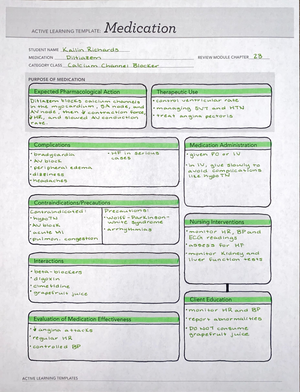 ACTIVE LEARNING TEMPLATE: Medication
STUDENT NAME Kailin Richards
MEDICATION Diltiazem
REVIEW MODULE CHAPTER 23
CATEGORY CLASS Calcium Channel Blocker
PURPOSE OF MEDICATION
Expected Pharmacological Action
Diltiazem blocks calcium channels
in myocardium, SA node, and
AV node, then ↓ contraction force,
↓ HR, and slowed AV conduction
rate.
Therapeutic Use
• control ventricular rate
• managing SVT and HTN
• treat angina pectoris
Complications
• bradycardia
• AV block
• peripheral edema
• dizziness
• headaches
• HF in serious
cases
Medication Administration
• given PO or IV
• in IV, give slowly to
avoid complications
like hypoTN
Contraindications/Precautions
Contraindicated:
• hypoTN
• AV block
• acute MI
• pulmon. congestion
Precautions:
• Wolff-Parkinson-
White syndrome
• arrhythmias
Nursing Interventions
• monitor HR, BP and
ECG readings
• assess for HF
• monitor kidney and
liver function tests
Interactions
• beta-blockers
• digoxin
• cimetidine
• grapefruit juice
Client Education
• monitor HR and BP
• report abnormalities
• DO NOT consume
grapefruit juice
Evaluation of Medication Effectiveness
• ↓ angina attacks
• regular HR
• controlled BP
ACTIVE LEARNING TEMPLATES